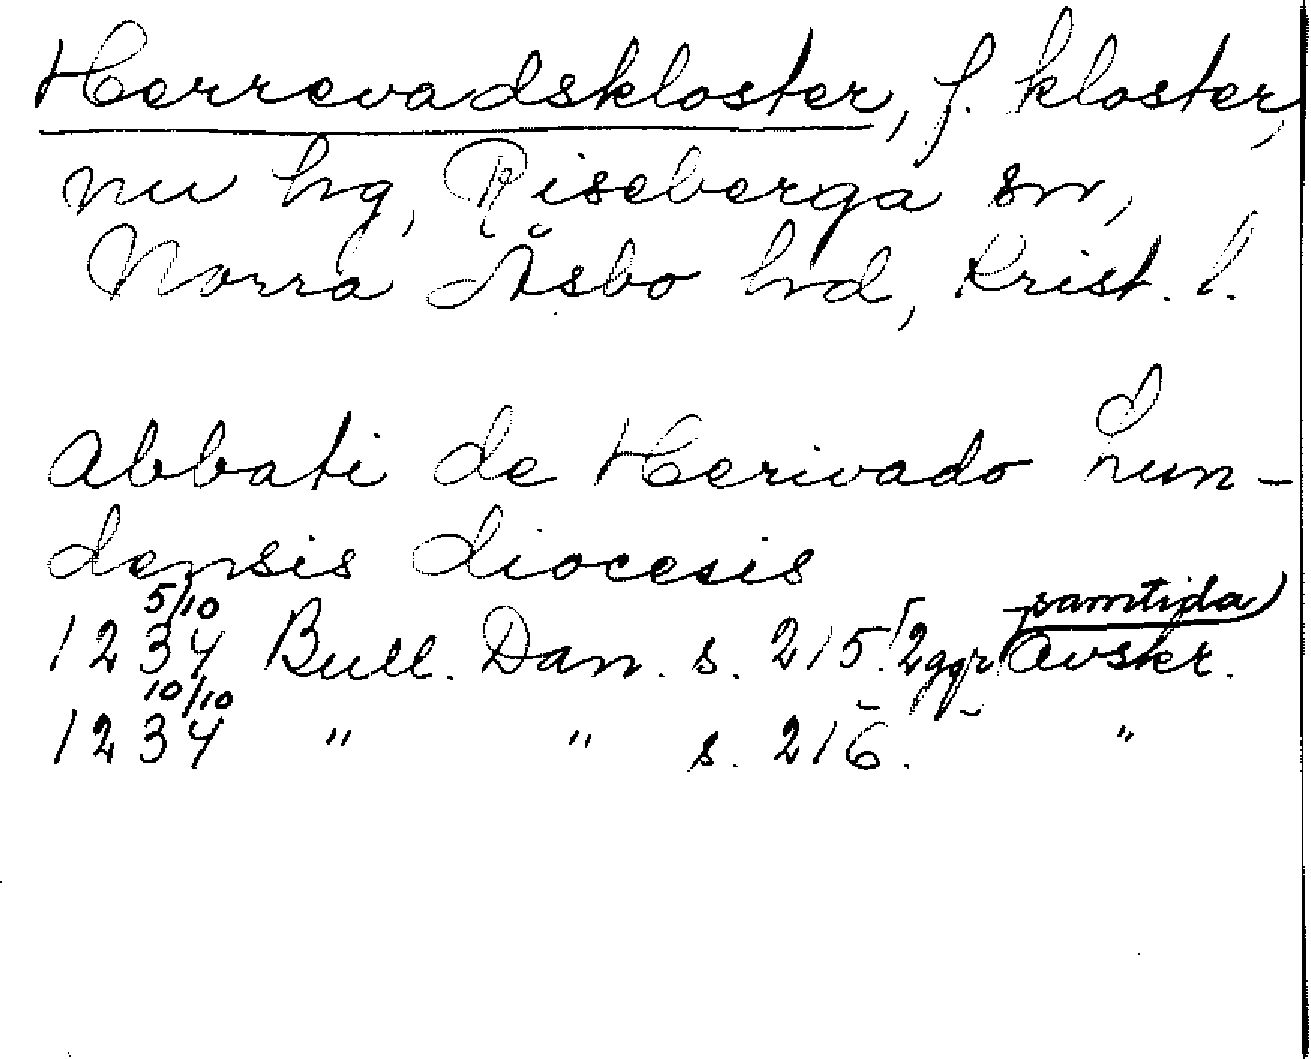 Herrevadskloster, f. kloster,
nu hg, Riseberga sn,
Norra Åsbo hd, Krist. l.
Abbati de Herivado Lun-
densis diocesis
5/10 samtida
1234 Bull. Dan. s. 215. (2 ggr) Avskr.
10/10
1234 " " s. 216. "